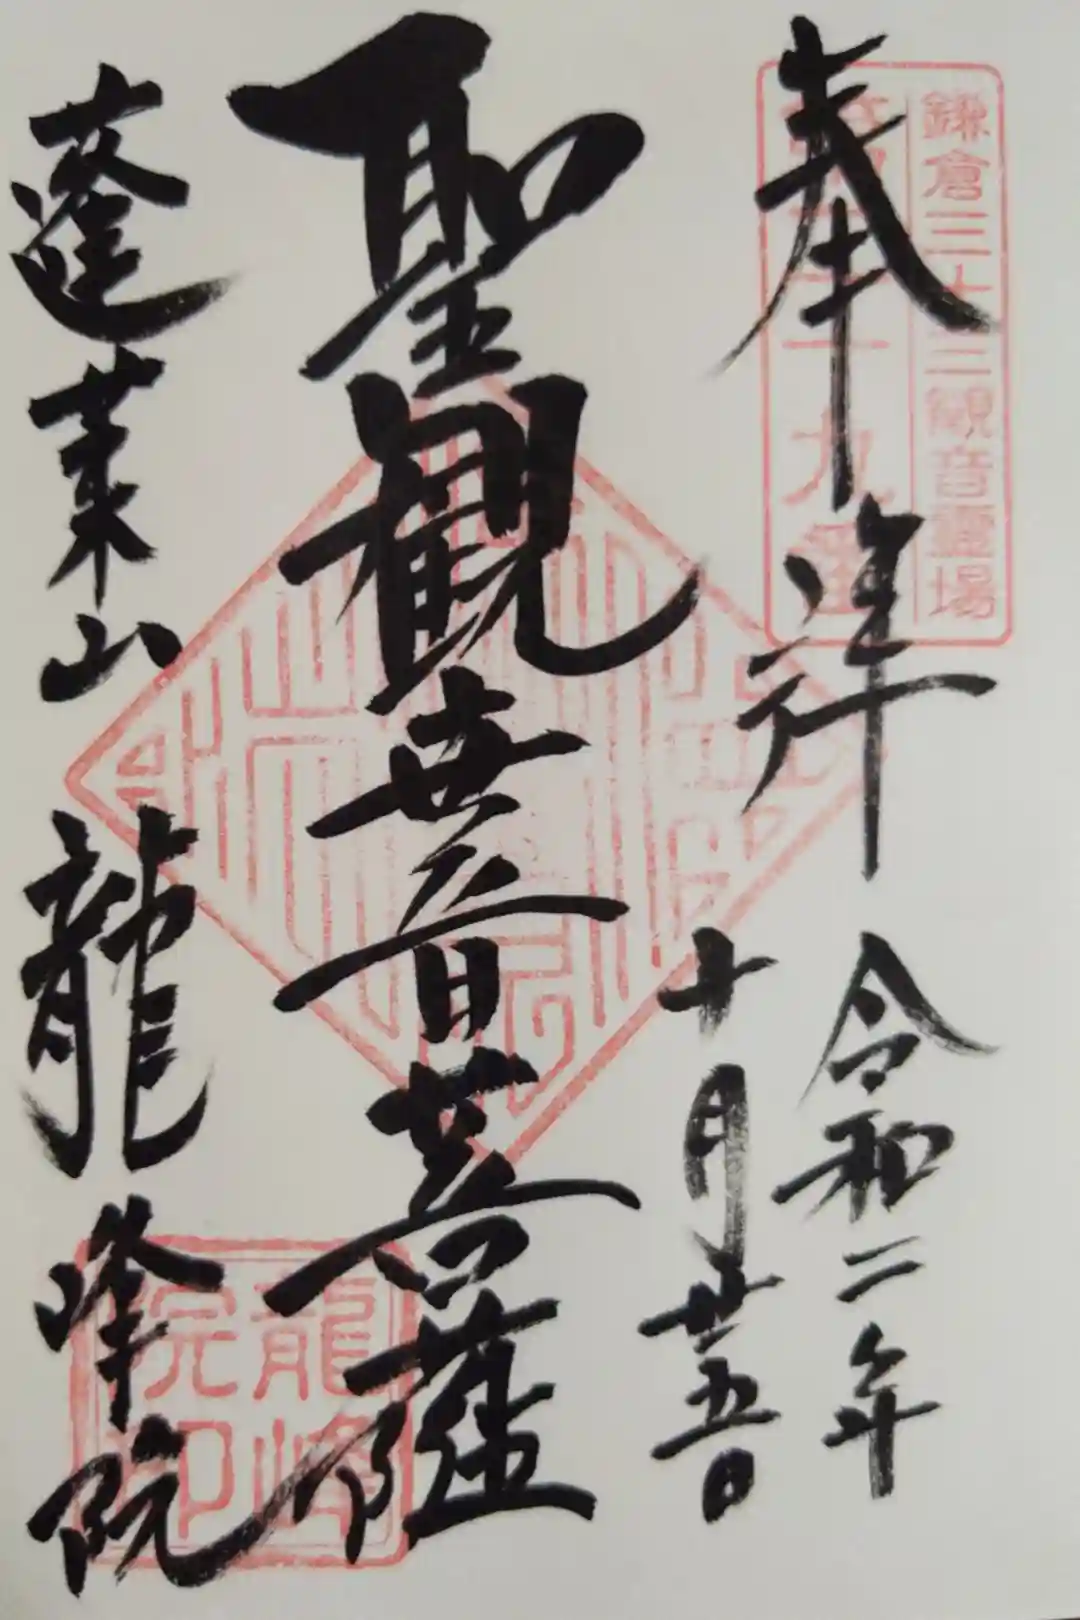 鎌倉三十三観音霊場
第二十九番
奉拝
令和二年
十月廿五日
聖観世音菩薩
蓬莱山
龍峰院
龍峰院印